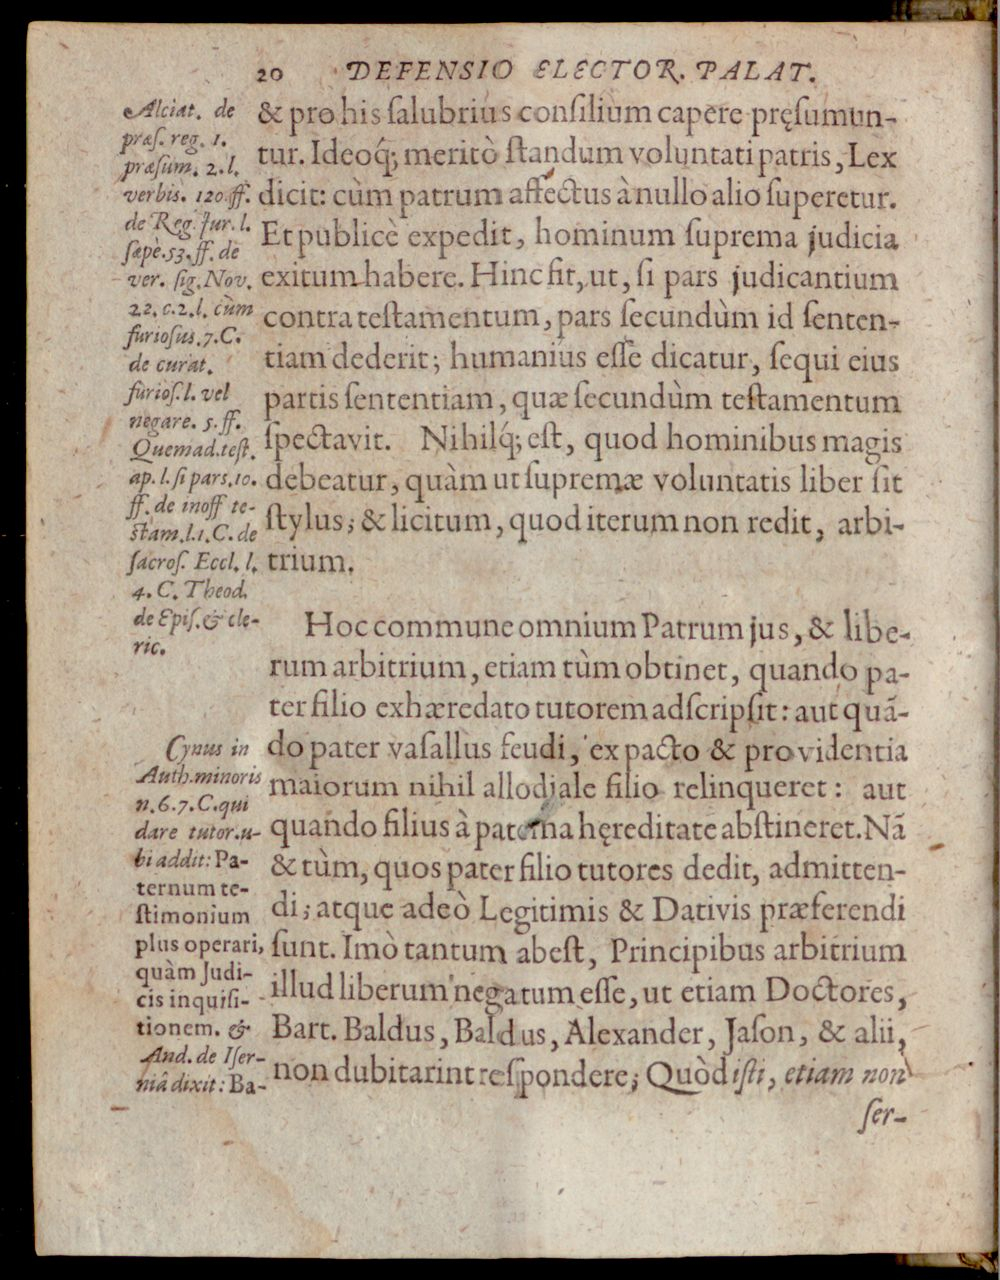 20 DEFENSIO ELECTOR. PALAT.
& pro his ſalubrius conſilium capere pręſumun-
tur. Ideoq́; meritò ſtandum voluntati patris, Lex
dicit: cùm patrum affectus à nullo alio ſuperetur.
Et publicè expedit, hominum ſuprema judicia
exitum habere. Hinc fit, ut, ſi pars judicantium
contra teſtamentum, pars ſecundùm id ſenten-
tiam dederit; humanius eſſe dicatur, ſequi eius
partis ſententiam, quæ ſecundùm teſtamentum
ſpectavit. Nihilq́; eſt, quod hominibus magis
debeatur, quàm ut ſupremæ voluntatis liber ſit
ſtylus; & licitum, quod iterum non redit, arbi-
trium.
Hoc commune omnium Patrum jus, & libe-
rum arbitrium, etiam tùm obtinet, quando pa-
ter filio exhæredato tutorem adſcripſit: aut quã-
do pater vaſallus feudi, ex pacto & providentia
maiorum nihil allodiale filio relinqueret: aut
quando filius à paterna hęreditate abſtineret. Nã
& tùm, quos pater filio tutores dedit, admitten-
di; atque adeò Legitimis & Dativis præferendi
ſunt. Imò tantum abeſt, Principibus arbitrium
illud liberum negatum eſſe, ut etiam Doctores,
Bart. Baldus, Baldus, Alexander, Jaſon, & alii,
non dubitarint reſpondere; Quòd iſti, etiam non
ſer-
Alciat. de
præſ. reg. 1.
præſum. 2. l.
verbis. 120. ff.
de Reg. Jur. l.
ſæpè. 53. ff. de
ver. ſig. Nov.
22. c. 2. l. cùm
furioſus. 7. C.
de curat.
furioſ. l. vel
negare. 5. ff.
Quemad. teſt.
ap. l. ſi pars. 10.
ff. de inoff te-
ſtam. l. 1. C. de
ſacroſ. Eccl. l.
4. C. Theod.
de Epiſ. & cle-
ric.
Cynus in
Auth. minoris
n. 6. 7. C. qui
dare tutor. u-
bi addit: Pa-
ternum te-
ſtimonium
plus operari,
quàm Judi-
cis inquiſi-
tionem. &
And. de Iſer-
niâ dixit: Ba-